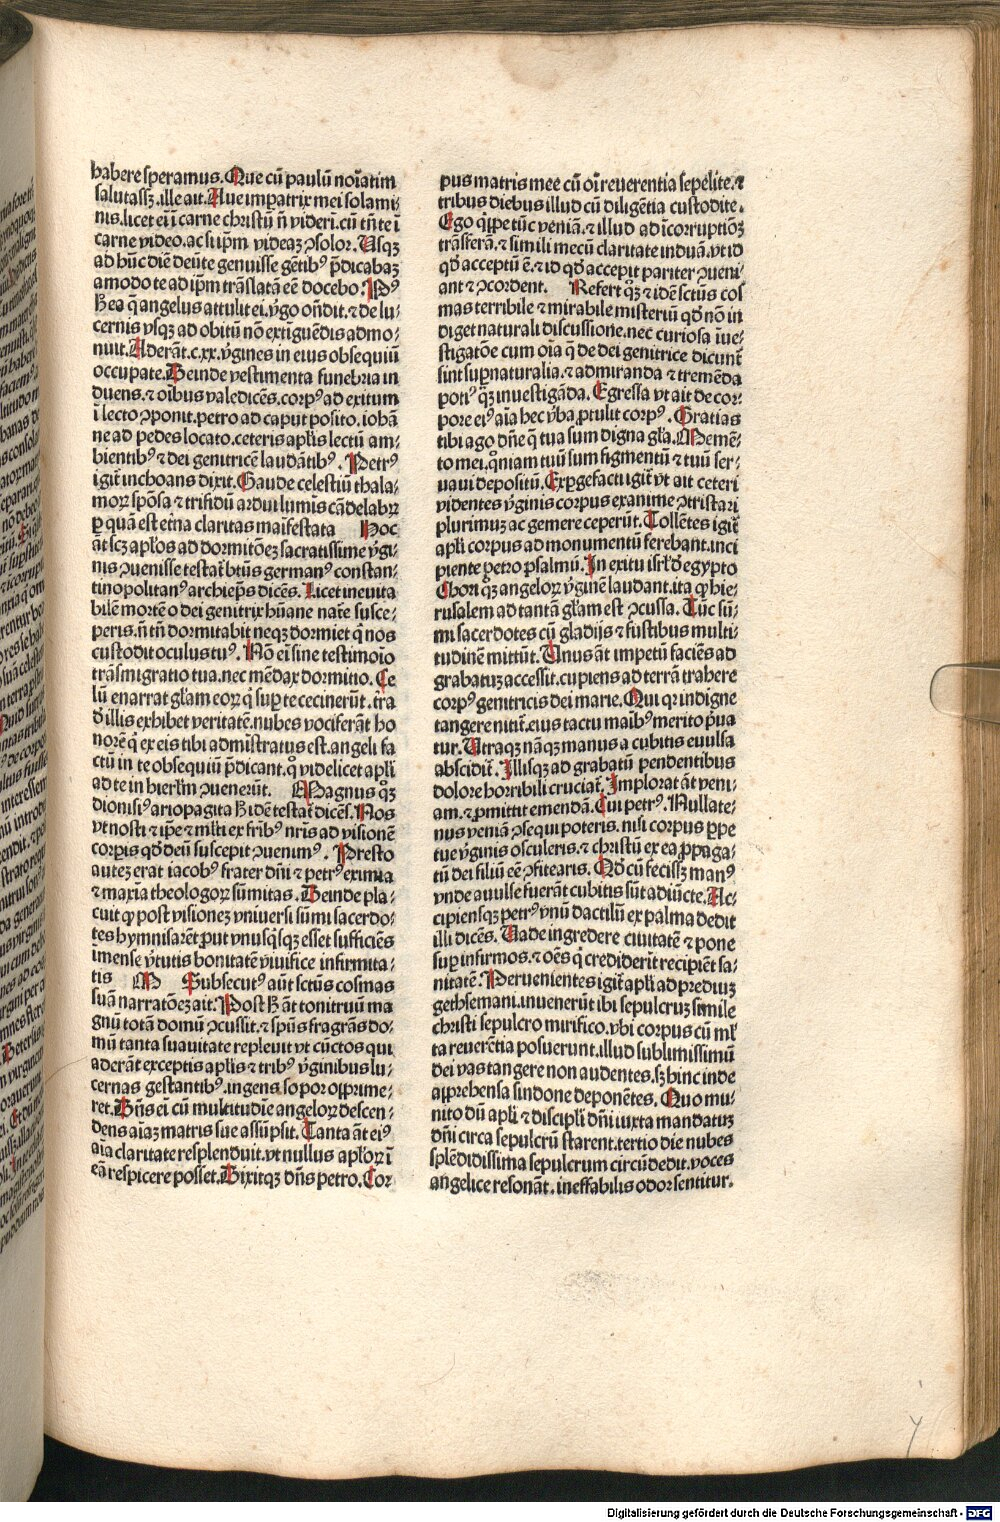 habere speramus. Que cũ paulũ noĩatim
salutassꝫ. ille ait. Aue impatrix mei solami⸗
nis. licet ei ĩ carne christũ ñ viderĩ. cũ tñ te ĩ
carne video. ac si ipm videaꝫ ꝯsolor. Usqꝫ
ad hũc diẽ deũ te genuisse gẽtibꝰ p̃dicabaꝫ
amodo te ad ip̃m trãslatã eẽ docebo. Pꝰ
hea q̃ angelus attulit ei. ṽgo oñdit. ⁊ de lu⸗
cernis vsqꝫ ad obitũ nõ extĩguẽdis admo⸗
nuit. Aderãt. c.xx. ṽgines in eius obsequiũ
occupate. Deinde vestimenta funebria in
duens. ⁊ oĩbus valedicẽs. corpꝰ ad exitum
ĩ lecto ꝯponit. petro ad caput posito. iohã
ne ad pedes locato. ceteris apl̃is lectũ am⸗
bientibꝰ ⁊ dei genitricẽ laudãtibꝰ. Petrꝰ
igit̃ inchoans dixit. Gaude celestiũ thala⸗
moꝝ spõsa ⁊ trifidũ ardui lumĩs cãdelabꝝ
ꝑ quã est et̃na claritas maĩfestata Hoc
ãt scꝫ apl̃os ad dormitõeꝫ sacratissime ṽgi⸗
nis ꝯuenisse testat̃ bt̃us germanꝰ constan⸗
tinopolitanꝰ archiep̃s dicẽs. Licet ineuita
bilẽ mortẽ o dei genitrix hũane nat̃e susce⸗
peris. ñ tñ dormitabit neqꝫ dormiet q̃ nos
custodit oculus tuꝰ. Nõ eĩ sine testimoĩo
trãsmigratio tua. nec mẽdax dormitio. Ce
lũ enarrat gl̃am eoꝝ q̃ suꝑ te cecinerũt. t̃ra
d̃ illis exhibet veritatẽ. nubes vociferãt ho
norẽ q̃ ex eis tibi admĩstratus est. angeli fa
ctũ in te obsequiũ p̃dicant. q̊ videlicet apl̃i
ad te in hierl̃m ꝯuenerũt. Magnus qꝫ
dionisiꝰ ariopagita hidẽ testat̃ dicẽs. Nos
vt nosti ⁊ ip̃e ⁊ ml̃ti ex fr̃ibꝰ nr̃is ad visionẽ
corꝑis qd̃ deũ suscepit ꝯuenimꝰ. Presto
auteꝫ erat iacobꝰ frater dñi ⁊ petrꝰ eximia
⁊ maxĩa theologoꝝ sũmitas. Deinde pla⸗
cuit qꝫ post visioneꝫ vniuersi sũmi sacerdo⸗
tes hymnisarẽt ꝓut vnusq̃sqꝫ esset sufficiẽs
ĩmense ṽtutis bonitatẽ viuifice infirmita⸗
tis M Subsecutꝰ aũt sctũs cosmas
suã narratõeꝫ ait. Post h ãt tonitruũ ma
gnũ totã domũ ꝯcussit. ⁊ spũs fragrãs do⸗
mũ tanta suauitate repleuit vt cũctos qui
aderãt exceptis apl̃is ⁊ tribꝰ ṽginibus lu⸗
cernas gestantibꝰ. ingens sopor opprime⸗
ret. Dñs eĩ cũ multitudĩe angeloꝝ descen⸗
dens aĩaꝫ matris sue assũpsit. Tanta ãt eiꝰ
aĩa claritate resplenduit. vt nullus apl̃oꝝ ĩ
eã respicere posset. Dixitqꝫ dñs petro. Cor
pus matris mee cũ oĩ reuerentia sepelite. ⁊
tribus diebus illud cũ diligẽtia custodite.
Ego q̊ippe tũc veniã. ⁊ illud ad ĩcorruptiõꝫ
trãsferã. ⁊ simili mecũ claritate induã. vt id
qd̃ acceptũ ẽ. ⁊ id qd̃ accepit pariter ꝯueni⸗
ant ⁊ ꝯcordent. Refert qꝫ ⁊ idẽ sctũs cos
mas terribile ⁊ mirabile misteriũ qd̃ nõ in
diget naturali discussione. nec curiosa ĩue⸗
stigatõe cum oĩa q̃ de dei genitrice dicunt̃
sint suꝑnaturalia. ⁊ admiranda ⁊ tremẽda
potiꝰ qꝫ inuestigãda. Egressa vt ait de cor⸗
pore eiꝰ aĩa hec ṽba ꝓtulit corpꝰ. Gratias
tibi ago dñe q̃ tua sum digna gl̃a. Memẽ⸗
to mei. qm̃niam tuũ sum figmentũ ⁊ tuũ ser⸗
uaui depositũ. Expgefacti igit̃ vt ait ceteri
videntes ṽginis corpus exanime ꝯtristari
plurimuꝫ ac gemere ceperũt. Tollẽtes igit̃
apl̃i corpus ad monumentũ ferebant. inci
piente petro psalmũ. In exitu isrl̃ d̃ egypto
Chori qꝫ angeloꝝ ṽginẽ laudant. ita qꝫ hie⸗
rusalem ad tantã gl̃am est ꝯcussa. Tũc sũ⸗
mi sacerdotes cũ gladijs ⁊ fustibus multi⸗
tudinẽ mittũt. Unus ãt impetũ faciẽs ad
grabatuꝫ accessit. cupiens ad terrã trahere
corpꝰ genitricis dei marie. Qui qꝛ indigne
tangere nitit̃. eius tactu maĩbꝰ merito p̃ua
tur. Utraqꝫ nãqꝫ manus a cubitis euulsa
abscidit̃. Illisqꝫ ad grabatũ pendentibus
dolore horribili cruciat̃. Implorat ãt veni⸗
am. ⁊ ꝓmittit emendã. Cui petrꝰ. Nullate⸗
nus veniã ꝯsequi poteris. nisi corpus ꝑpe
tue ṽginis osculeris. ⁊ christũ ex ea ꝓpaga⸗
tũ dei filiũ eẽ ꝯfitearis. Qd̃ cũ fecissꝫ manꝰ
vnde auulse fuerãt cubitis sũt adiũcte. Ac⸗
cipiensqꝫ petrꝰ vnũ dactilũ ex palma dedit
illi dicẽs. Uade ingredere ciuitatẽ ⁊ pone
suꝑ infirmos. ⁊ oẽs q̃ crediderit recipiẽt sa⸗
nitatẽ. Peruenientes igit̃ apl̃i ad prediuꝫ
gethsemani. inuenerũt ibi sepulcruꝫ simile
christi sepulcro mirifico. vbi corpus cũ ml̃
ta reuerẽtia posuerunt. illud sublimissimũ
dei vas tangere non audentes. sꝫ hinc inde
apprehensa sindone deponẽtes. Quo mu⸗
nito dũ apl̃i ⁊ discipli dñi iuxta mandatuꝫ
dñi circa sepulcrũ starent. tertio die nubes
splẽdidissima sepulcrum circũdedit. voces
angelice resonãt. ineffabilis odor sentitur.
Digitalisierung gefördert durch die Deutsche Forschungsgemeinschaft - DFG